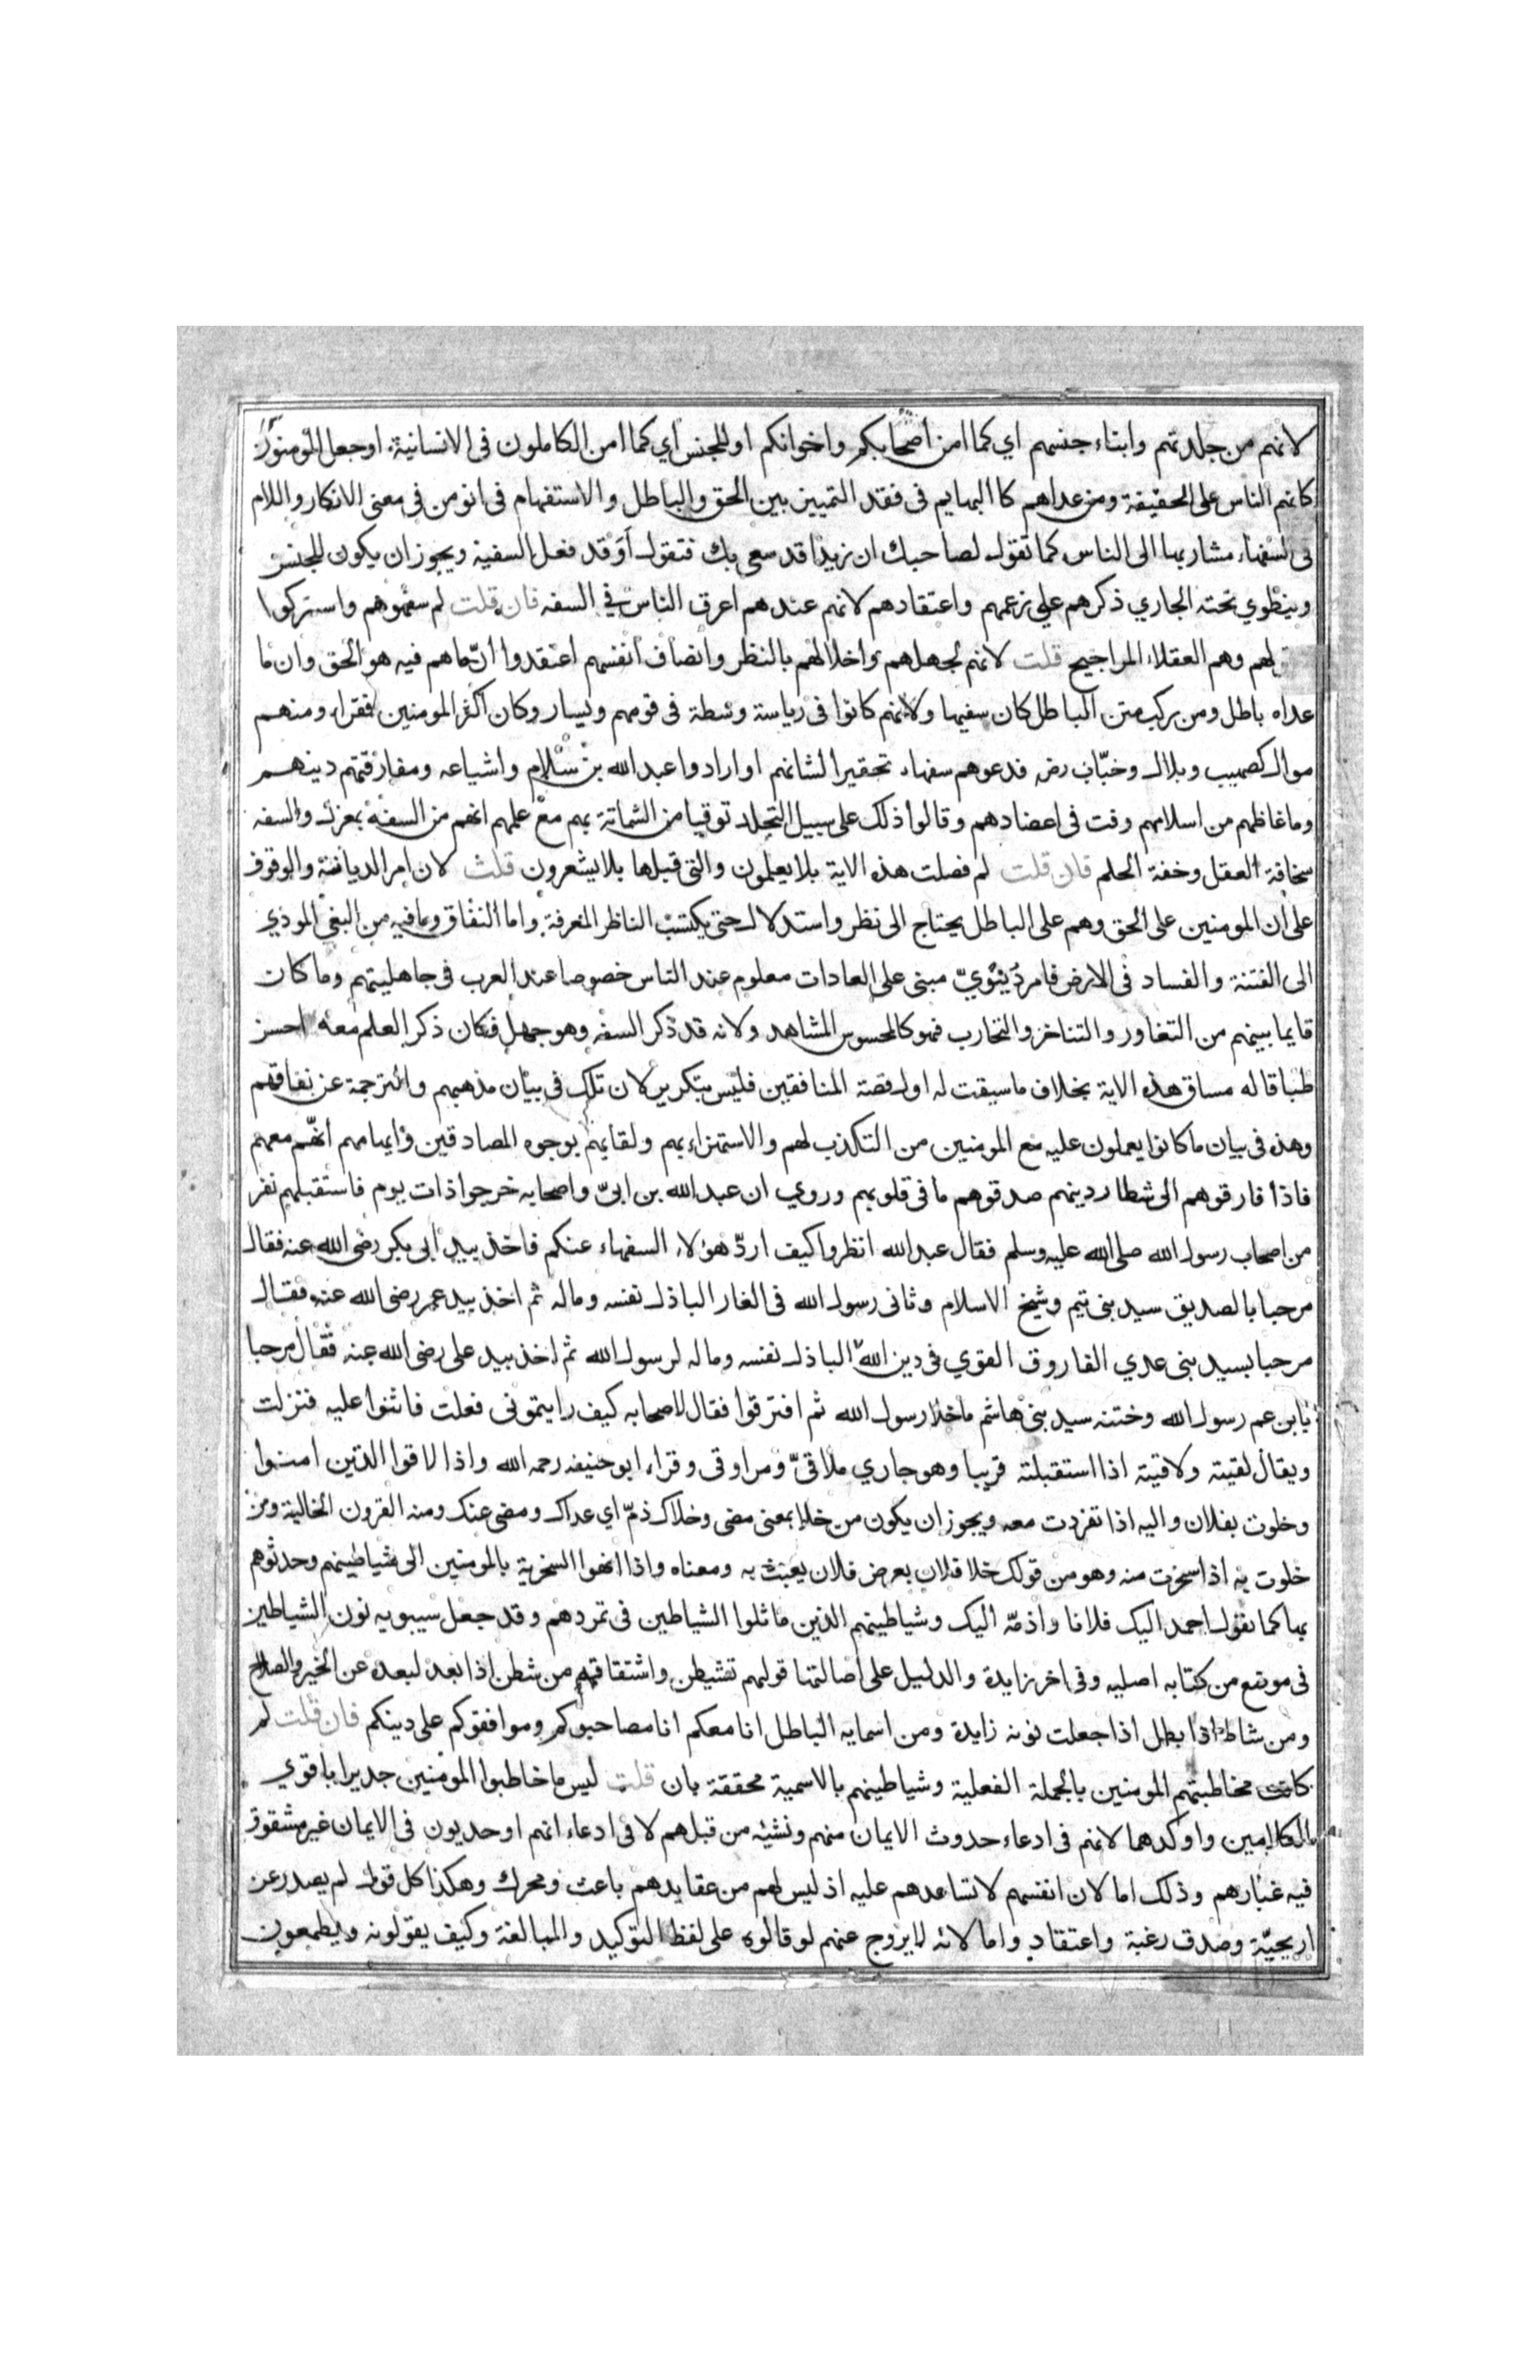 لانهم من جلدتهم وابناء جنسهم اي كما امن اصحابكم واخوانكم او للجنس اي كما امن الكاملون فى الانسانية او جعل المومنون
كانهم الناس على الحقيقة ومن عداهم كا البهايم فى فقد التمييز بين الحق والباطل والاستفهام فى انومن فى معنى الانكار واللام
فى السفهاء مشار بها الى الناس كما تقول لصاحبك ان زيدا قد سعى بك فتقول أوَقد فعل السفية ويجوز ان يكون للجنس
وينطوي تحته الجاري ذكرهم على زعمهم واعتقادهم لانهم عندهم اعرق الناس في السفه فان قلت لم سفهوهم واستركوا
لهم وهم العقلاء المراجيح قلت لانهم لجهلهم واخلالهم بالنظر وانصاف انفسهم اعتقدوا انّ ماهم فيه هو الحق وان ما
عداه باطل ومن ركب متن الباطل كان سفيها ولانهم كانوا فى رياسة وسطة فى قومهم ويسار وكان اكثر المومنين فقراء ومنهم
موال كصهيب وبلال وخبّاب رضه فدعوهم سفهاء تحقيرا لشانهم او ارادوا عبد الله بن سلام واشياعه ومفارقتهم دينهم
وما غاظهم من اسلامهم وفت فى اعضادهم وقالوا ذلك على سبيل التجلد توقيا من الشماتة بهم مع علمهم انهم من السفه بمعزل والسفه
سخافة العقل وخفة الحلم فان قلت لم فصلت هذه الاية بلا يعلمون والتى قبلها بلا يشعرون قلت لان امر الديانة والوقوف
على ان المومنين على الحق وهم على الباطل يحتاج الى نظر واستدلال حتى يكتسب الناظر المعرفة واما النفاق وما فيه من البغي الموذي
الى الفتنة والفساد فى الارض فامر دنيويّ مبنى على العادات معلوم عند الناس خصوصا عند العرب فى جاهليتهم وما كان
قايما بينهم من التغاور والتناخر والتحارب فهو كالمحسوس المشاهد ولانه قد ذكر السفه وهو جهل فكان ذكر العلم معه احسن
طباقا له مساق هذه الاية بخلاف ما سيقت له اول قصة المنافقين فليس بتكرير لان تلك فى بيان مذهبهم والترجمة عن نفاقهم
وهذه فى بيان ما كانوا يعملون عليه مع المومنين من التكذب لهم والاستهزاء بهم ولقايهم بوجوه المصادقين وايهامهم انهّم معهم
فاذا فارقوهم الى شطار دينهم صدقوهم ما فى قلوبهم وروي ان عبد الله بن ابىّ واصحابه خرجوا ذات يوم فاستقبلهم نفر
من اصحاب رسول الله صلى الله عليه وسلم فقال عبد الله انظروا كيف اردّ هؤلاء السفهاء عنكم فاخذ بيد ابى بكر رضى الله عنه فقال
مرحبا بالصديق سيد بنى تيم وشيخ الاسلام وثانى رسول الله فى الغار الباذل نفسه وماله ثم اخذ بيد عمر رضى الله عنه فقال
مرحبا بسيد بنى عدي الفاروق القوي فى دين الله الباذل نفسه وماله لرسول الله ثم اخذ بيد على رضى الله عنه فقال مرحبا
يابن عم رسول الله وختنه سيد بنى هاشم ما خلا رسول الله ثم افترقوا فقال لاصحابه كيف رايتمونى فعلت فاثنوا عليه فنزلت
ويقال لقيته ولاقيته اذا استقبلته قريبا وهو جاري ملاقىّ ومراوقى وقراء ابو حنيفه رحمه الله واذا لاقوا الذين امنوا
وخلوت بفلان واليه اذا تفردت معه ويجوز ان يكون من خلا بمعنى مضى وخلاك ذمّ اي عداك ومضى عنك ومنه القرون الخالية ومن
خلوت به اذا سخرت منه وهو من قولك خلا فلان بعرض فلان يعبث به ومعناه واذا انهوا السخرية بالمومنين الى شياطينهم وحدثوهم
بها كما تقول احمد اليك فلانا واذمّه اليك وشياطينهم الذين ماثلوا الشياطين فى تمردهم وقد جعل سيبويه نون الشياطين
فى موضع من كتابه اصليه وفى اخر زايدة والدليل على اصالتها قولهم تشيطن واشتقاقهم من شطن اذا بعد لبعده عن الخير والصلاح
ومن شاط اذا بطل اذا جعلت نونه زايدة ومن اسمايه الباطل انا معكم انا مصاحبوكم وموافقوكم على دينكم فان قلت لم
كانت مخاطبتهم المومنين بالجملة الفعلية وشياطينهم بالاسمية محققة بان قلت ليس ما خاطبوا المومنين جديرا باقوي
الكلامين واوكدهما لانهم فى ادعاء حدوث الايمان منهم ونشئه من قبلهم لا فى ادعاء انهم اوحديون فى الايمان غير مشقوق
فيه غبارهم وذلك اما لان انفسهم لا تساعدهم عليه اذ ليس لهم من عقايدهم باعث ومحرك وهكذا كل قول لم يصدر عن
اريحيّة وصدق رغبة واعتقاد واما لانه لا يروج عنهم لو قالوه على لفظ التوكيد والمبالغة وكيف يقولونه ويطمعون